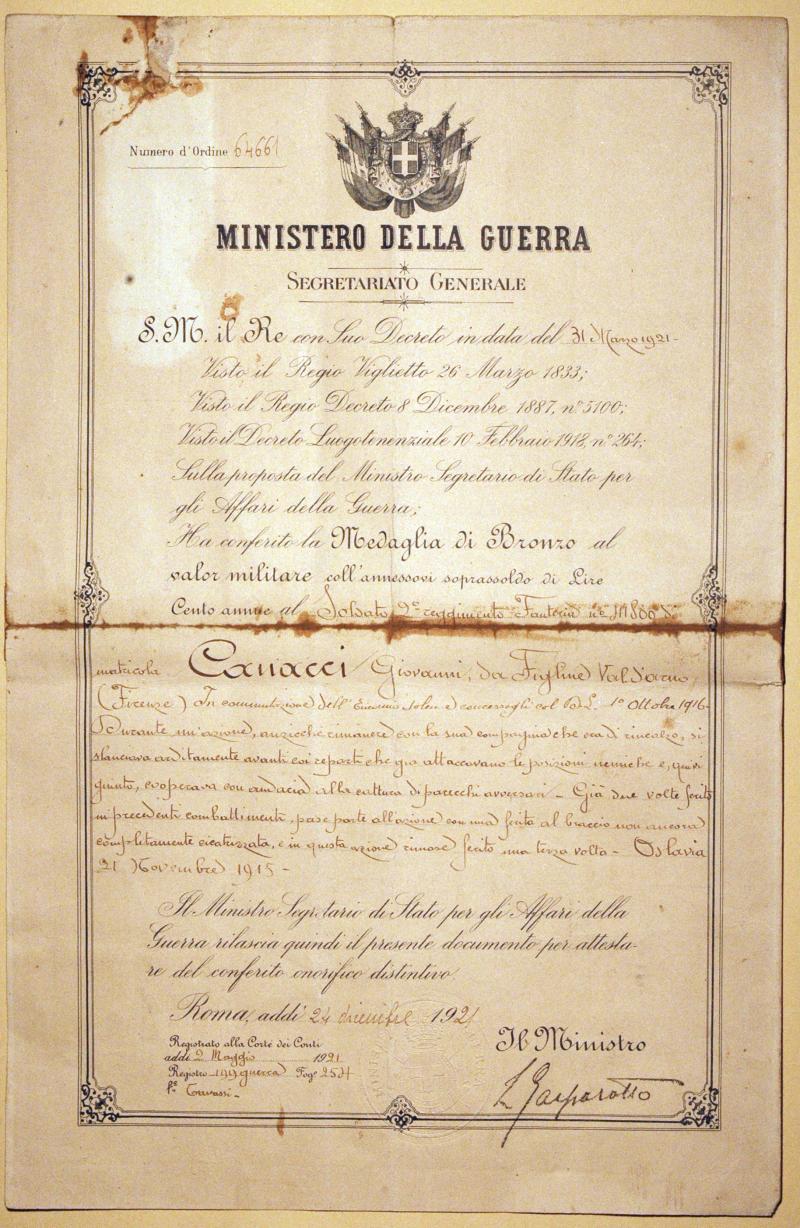 Numero d'Ordine 64661
MINISTERO DELLA GUERRA
SEGRETARIATO GENERALE
S. M. il Re con Suo Decreto in data del 31 Marzo 1921-
Visto il Regio Viglietto 26 Marzo 1833;
Visto il Regio Decreto 8 Dicembre 1887, nº 5100;
Visto il Decreto Luogotenenziale 10 Febbraio 1918, nº 264;
Sulla proposta del Ministro Segretario di Stato per
gli Affari della Guerra;
Ha conferito la Medaglia di Bronzo al
valor militare coll'annessovi soprassoldo di Lire
Cento annue al Soldato 2º reggimento Fanteria nº di
matricola Canacci Giovanni, da Figline Val d'Arno
(Firenze) In commutazione dell'Encomio solenne concessogli col 1º Ottobre 1916-
Durante un'azione, anzicche rimanere con la sua compagnia che era di rincalzo, si
slanciava arditamente avanti coi reparti che già attaccavano le posizioni nemiche e, quivi
giunto, cooperava con audacia alla cattura di parecchi avversari - Già due volte ferito
in precedenti combattimenti, prese parte all'azione con una ferita al braccio non ancora
completamente cicatrizzata, e in questa azione rimase ferito una terza volta - Oslavia
21 Novembre 1915 -
Il Ministro Segretario di Stato per gli Affari della
Guerra rilascia quindi il presente documento per attesta-
re del conferito onorifico distintivo.
Roma, addì 24 dicembre 1921
Registrato alla Corte dei Conti
addì 2 Maggio 1921
Registro guerra Fogº 254
Il Ministro
L Gasparotto